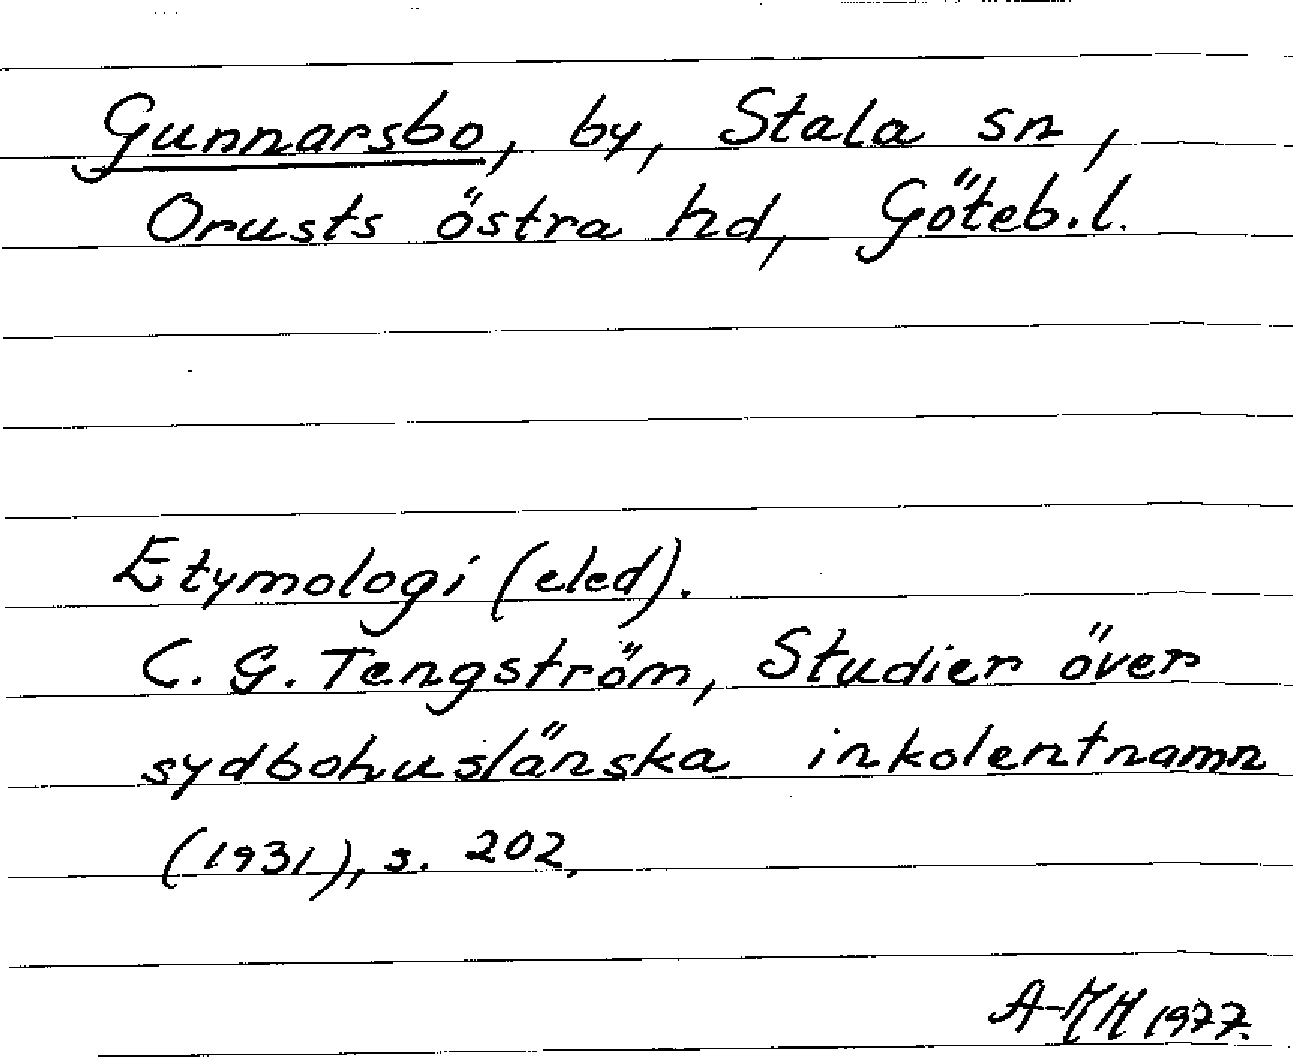 Gunnarsbo, by, Stala sn,
Orusts östra hd, Göteb.l.
Etymologi (eled).
C. G. Tengström, Studier över
sydbohuslänska inkolentnamn
(1931), s. 202.
1977.